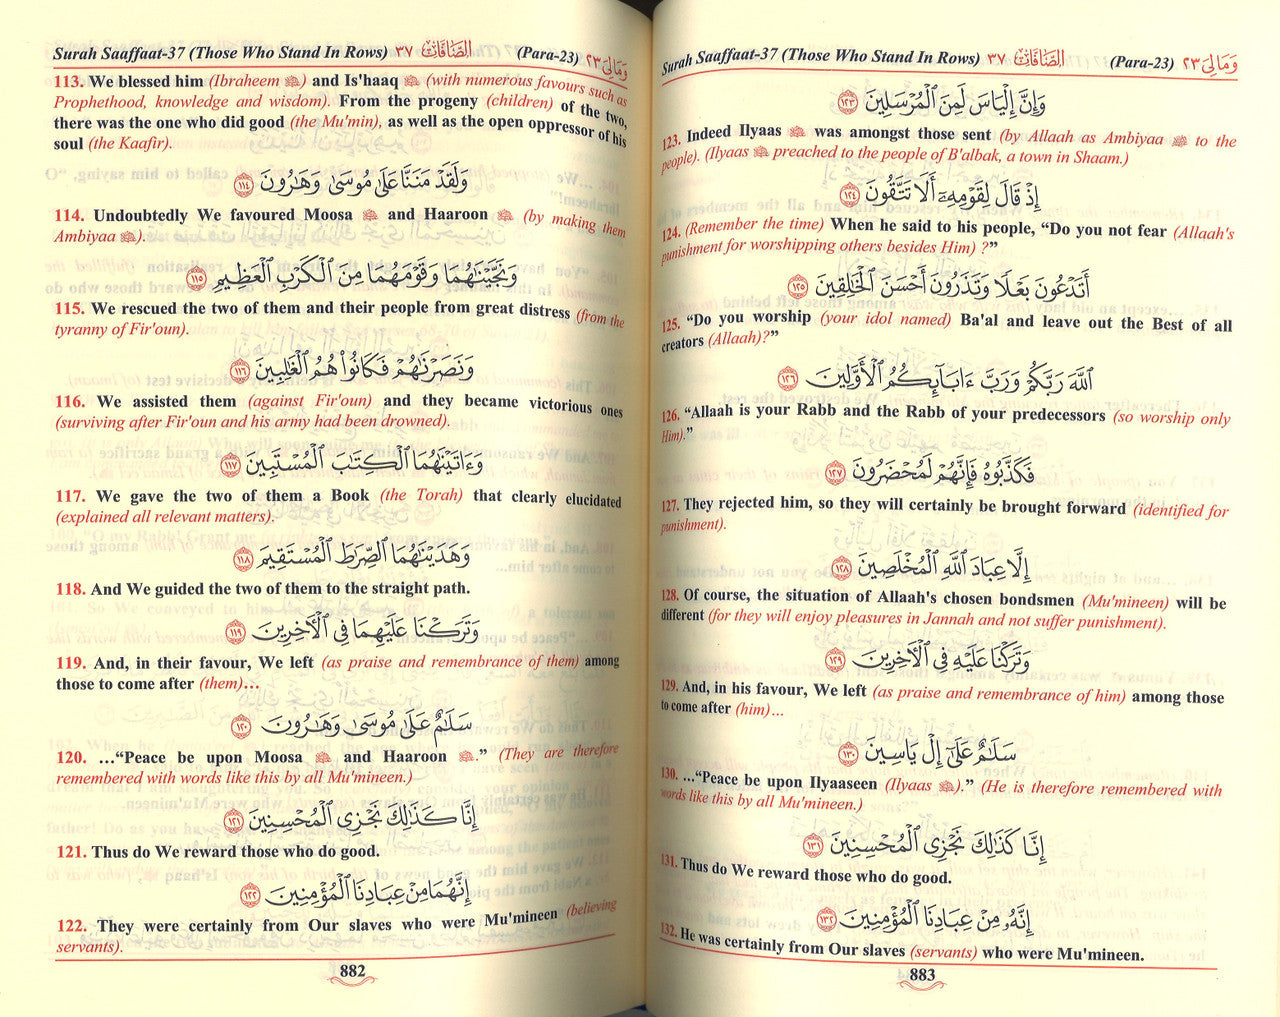 Surah Saaffaat-37 (Those Who Stand In Rows) ٣٧ الصّافّات (Para-23) وَمَالِيَ ٢٣
113. We blessed him (Ibraheem) and Is'haaq (with numerous favours such as
Prophethood, knowledge and wisdom). From the progeny (children) of the two,
there was the one who did good (the Mu'min), as well as the open oppressor of his
soul (the Kaafir).
وَلَقَدْ مَنَنَّا عَلَىٰ مُوسَىٰ وَهَارُونَ ١١٤
114. Undoubtedly We favoured Moosa and Haaroon (by making them
Ambiyaa).
وَنَجَّيْنَاهُمَا وَقَوْمَهُمَا مِنَ ٱلْكَرْبِ ٱلْعَظِيمِ ١١٥
115. We rescued the two of them and their people from great distress (from the
tyranny of Fir'oun).
وَنَصَرْنَاهُمْ فَكَانُوا۟ هُمُ ٱلْغَالِبِينَ ١١٦
116. We assisted them (against Fir'oun) and they became victorious ones
(surviving after Fir'oun and his army had been drowned).
وَءَاتَيْنَاهُمَا ٱلْكِتَابَ ٱلْمُسْتَبِينَ ١١٧
117. We gave the two of them a Book (the Torah) that clearly elucidated
(explained all relevant matters).
وَهَدَيْنَاهُمَا ٱلصِّرَاطَ ٱلْمُسْتَقِيمَ ١١٨
118. And We guided the two of them to the straight path.
وَتَرَكْنَا عَلَيْهِمَا فِى ٱلْأَخِرِينَ ١١٩
119. And, in their favour, We left (as praise and remembrance of them) among
those to come after (them)…
سَلَامٌ عَلَىٰ مُوسَىٰ وَهَارُونَ ١٢٠
120. …“Peace be upon Moosa and Haaroon.” (They are therefore
remembered with words like this by all Mu'mineen.)
إِنَّا كَذَٰلِكَ نَجْزِى ٱلْمُحْسِنِينَ ١٢١
121. Thus do We reward those who do good.
إِنَّهُمَا مِنْ عِبَادِنَا ٱلْمُؤْمِنِينَ ١٢٢
122. They were certainly from Our slaves who were Mu'mineen (believing
servants).
882
Surah Saaffaat-37 (Those Who Stand In Rows) ٣٧ الصّافّات (Para-23) وَمَالِيَ ٢٣
وَإِنَّ إِلْيَاسَ لَمِنَ ٱلْمُرْسَلِينَ ١٢٣
123. Indeed Ilyaas was amongst those sent (by Allaah as Ambiyaa to the
people). (Ilyaas preached to the people of B'albak, a town in Shaam.)
إِذْ قَالَ لِقَوْمِهِۦٓ أَلَا تَتَّقُونَ ١٢٤
124. (Remember the time) When he said to his people, “Do you not fear (Allaah's
punishment for worshipping others besides Him) ?”
أَتَدْعُونَ بَعْلًا وَتَذَرُونَ أَحْسَنَ ٱلْخَالِقِينَ ١٢٥
125. “Do you worship (your idol named) Ba'al and leave out the Best of all
creators (Allaah)?”
ٱللَّهَ رَبَّكُمْ وَرَبَّ ءَابَآئِكُمُ ٱلْأَوَّلِينَ ١٢٦
126. “Allaah is your Rabb and the Rabb of your predecessors (so worship only
Him).”
فَكَذَّبُوهُ فَإِنَّهُمْ لَمُحْضَرُونَ ١٢٧
127. They rejected him, so they will certainly be brought forward (identified for
punishment).
إِلَّا عِبَادَ ٱللَّهِ ٱلْمُخْلَصِينَ ١٢٨
128. Of course, the situation of Allaah's chosen bondsmen (Mu'mineen) will be
different (for they will enjoy pleasures in Jannah and not suffer punishment).
وَتَرَكْنَا عَلَيْهِ فِى ٱلْأَخِرِينَ ١٢٩
129. And, in his favour, We left (as praise and remembrance of him) among those
to come after (him)…
سَلَامٌ عَلَىٰٓ إِلْ يَاسِينَ ١٣٠
130. …“Peace be upon Ilyaaseen (Ilyaas).” (He is therefore remembered with
words like this by all Mu'mineen.)
إِنَّا كَذَٰلِكَ نَجْزِى ٱلْمُحْسِنِينَ ١٣١
131. Thus do We reward those who do good.
إِنَّهُۥ مِنْ عِبَادِنَا ٱلْمُؤْمِنِينَ ١٣٢
132. He was certainly from Our slaves (servants) who were Mu'mineen.
883